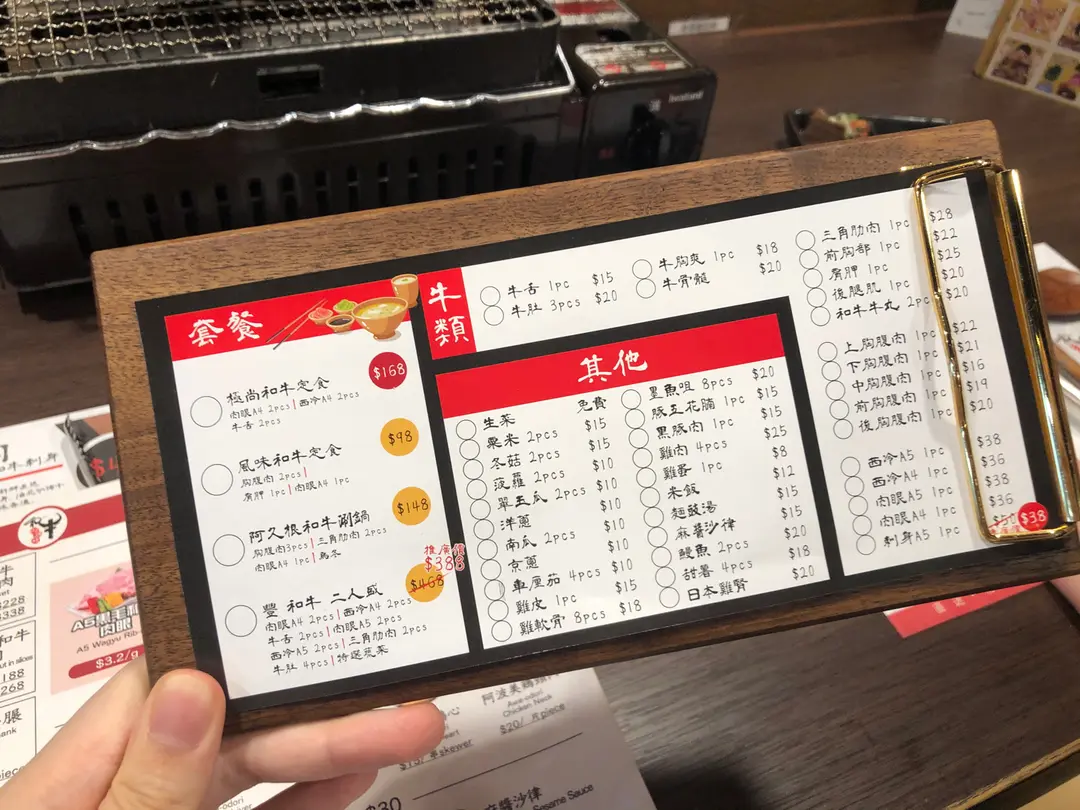 套餐
$168
極尚和牛定食
肉眼A4 2pcs | 西冷A4 2pcs
牛舌 2pcs
$98
風味和牛定食
胸腹肉 2pcs |
肩胛 1pc | 肉眼A4 1pc
$148
阿久根和牛涮鍋
胸腹肉3pcs | 三角肋肉 2pcs
肉眼A4 1pc | 烏冬
推廣價
$388
$468
豐 和牛 二人盛
肉眼A4 2pcs | 西冷A4 2pcs
牛舌 2pcs | 肉眼A5 2pcs
西冷A5 2pcs | 三角肋肉 2pcs
牛肚 4pcs | 特選蔬菜
牛類
牛舌 1pc $15
牛肚 3pcs $20
牛胸爽 1pc $18
牛骨髓 $20
三角肋肉 1pc $28
前胸部 1pc $22
肩胛 1pc $25
後腿肌 1pc $20
和牛牛丸 2pc $20
上胸腹肉 1pc $22
下胸腹肉 1pc $21
中胸腹肉 1pc $16
前胸腹肉 1pc $19
後胸腹肉 1pc $20
西冷A5 1pc $38
西冷A4 1pc $36
肉眼A5 1pc $38
肉眼A4 1pc $36
刺身A5 1pc $50 $38
其他
生菜 免費
粟米 2pcs $15
冬菇 2pcs $15
菠蘿 2pcs $10
翠玉瓜 2pcs $10
洋蔥 $10
南瓜 2pcs $10
京蔥 $10
車厘茄 4pcs $10
雞皮 1pc $15
雞軟骨 8pcs $18
墨魚咀 8pcs $20
豚五花腩 1pc $15
黑豚肉 1pc $15
雞肉 4pcs $25
雞蛋 1pc $8
米飯 $12
麵豉湯 $15
麻醬沙律 $15
鰻魚 2pcs $20
甜薯 4pcs $18
日本雞腎 $20
和牛刺身
228
338
和牛
188
268
A5黑毛和
肉眼
A5 Wagyu Rib-
$3.2/g
心
$15/串skewer
Awa-odori
Chicken Neck
$20/片piece
$30
麻醬沙律
Sesame Sauce